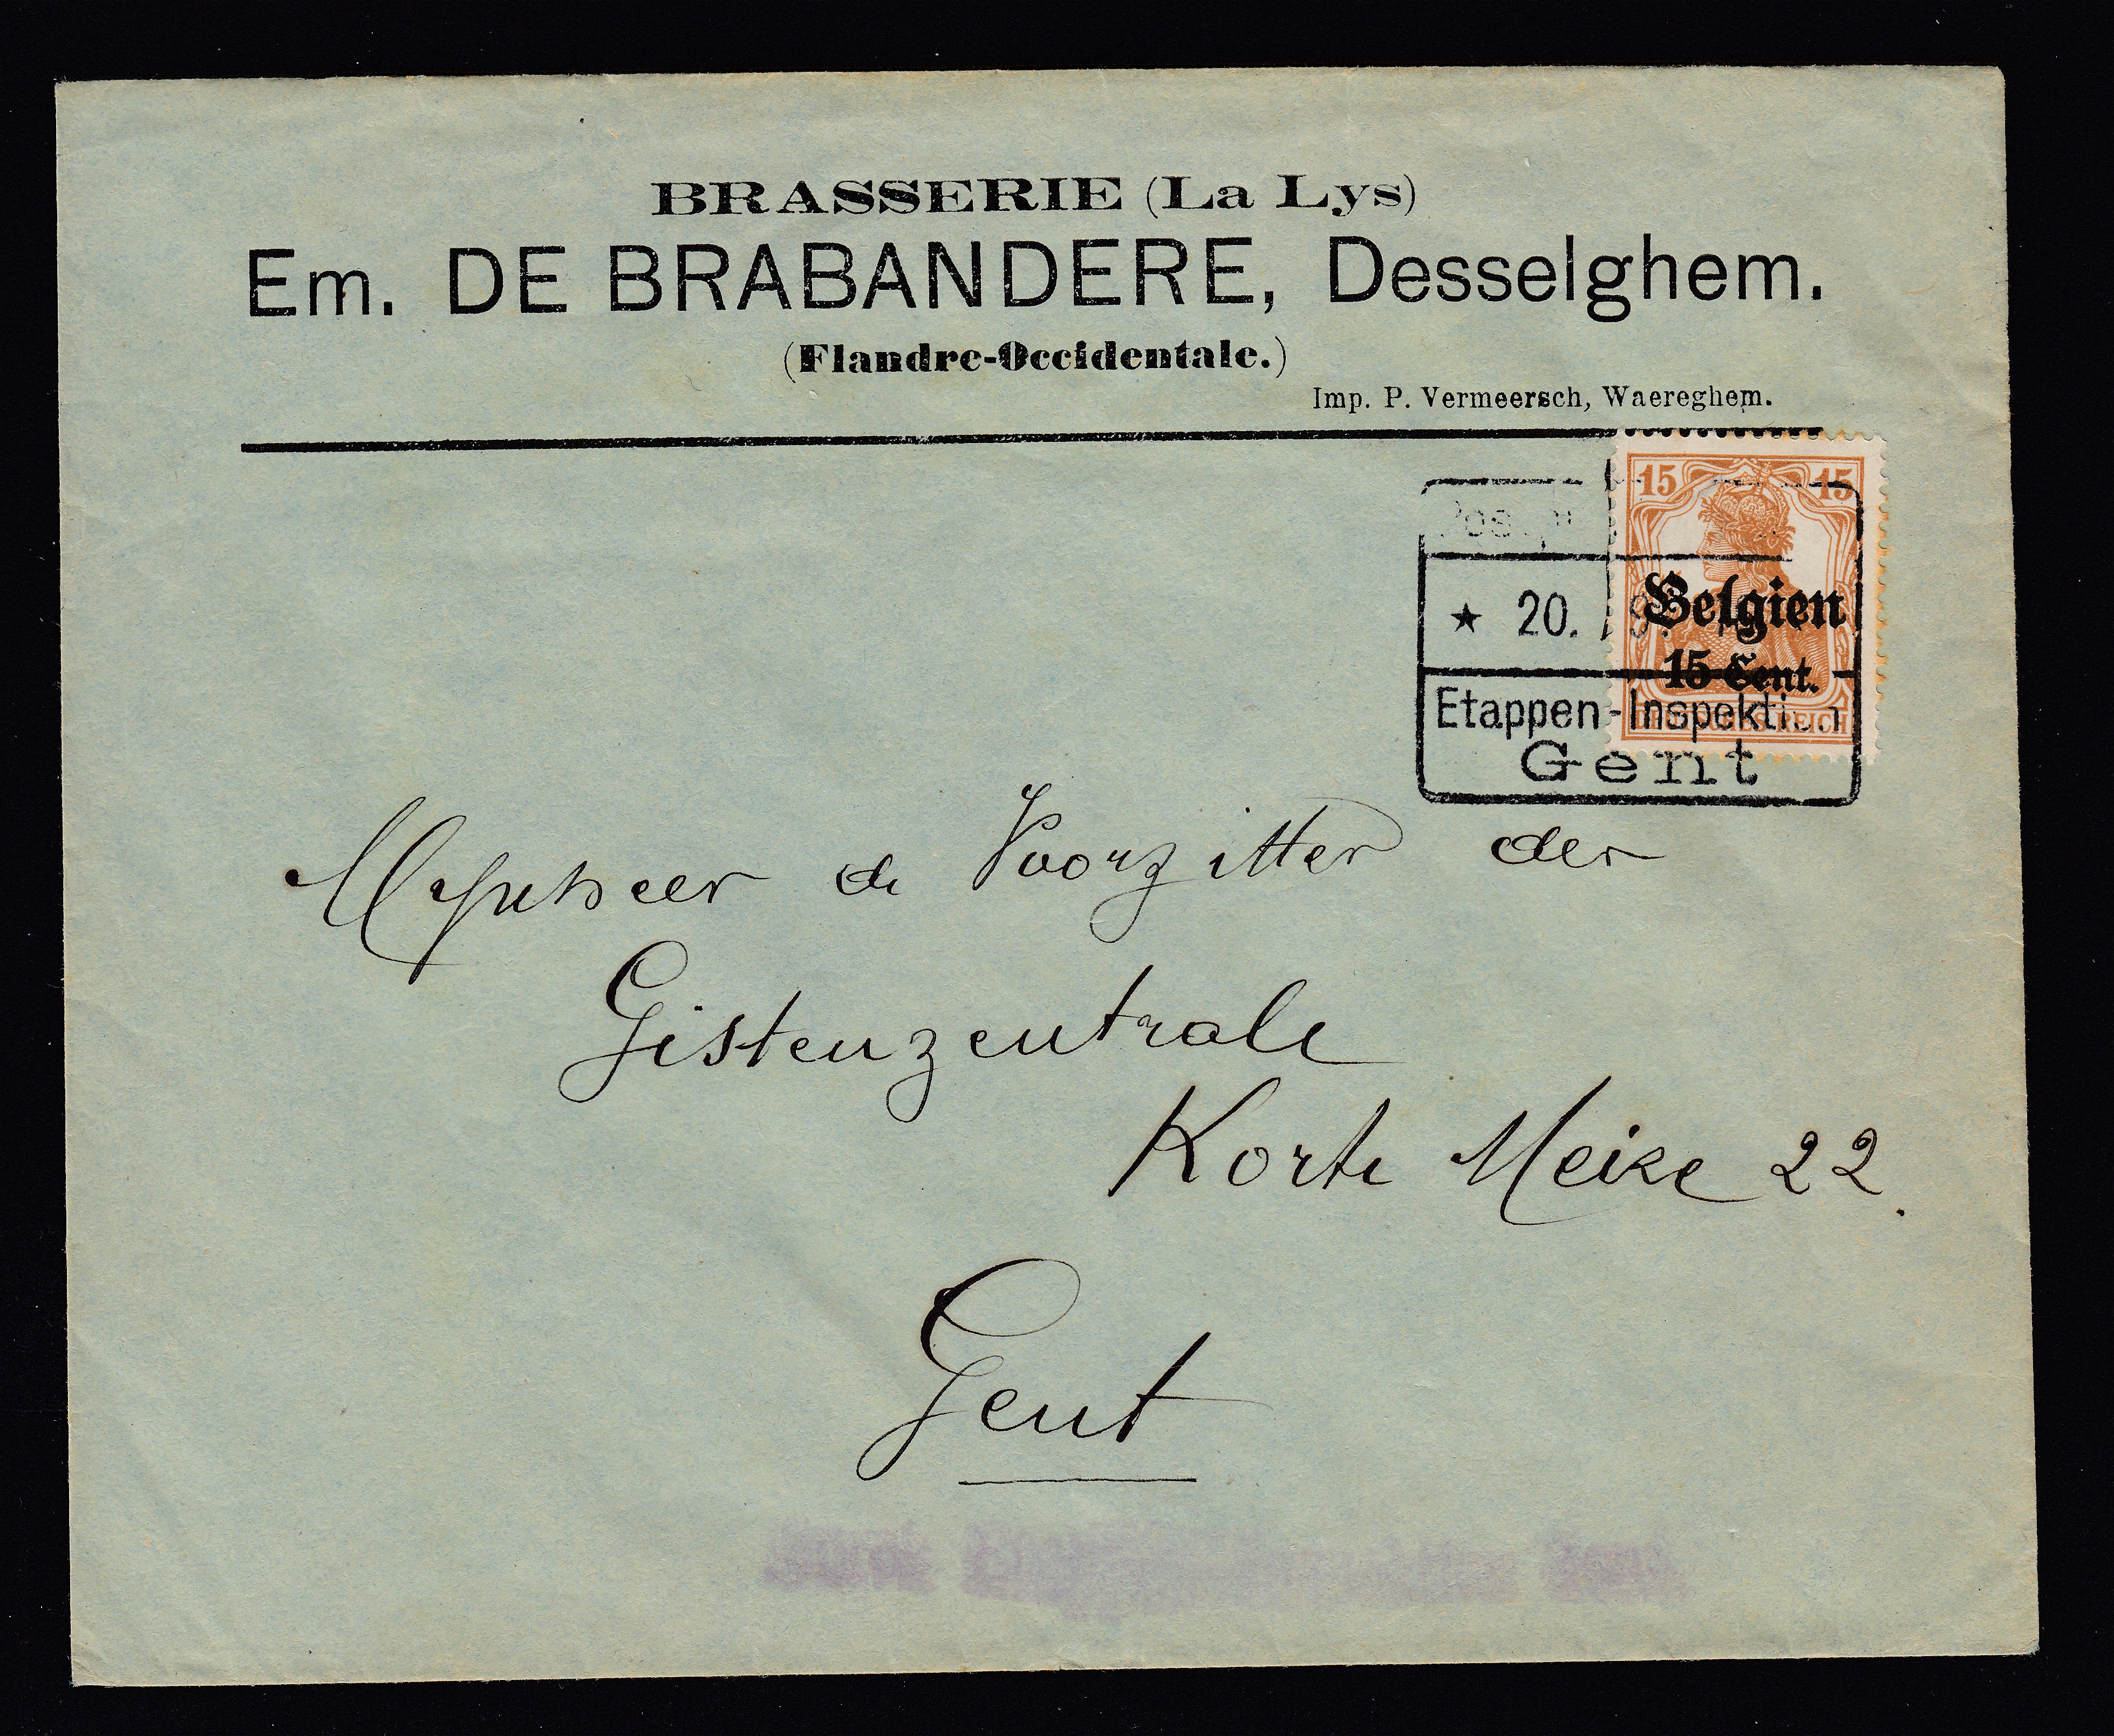 BRASSERIE (La Lys)
Em. DE BRABANDERE, Desselghem.
(Flandre-Occidentale.)
Imp. P. Vermeersch, Waereghem.
15 15
Belgien
15 Cent.
REICH
★ 20.
Etappen-Inspektion
Gent
Mynheer de Voorzitter der
Gistenzentrale
Korte Meire 22.
Gent